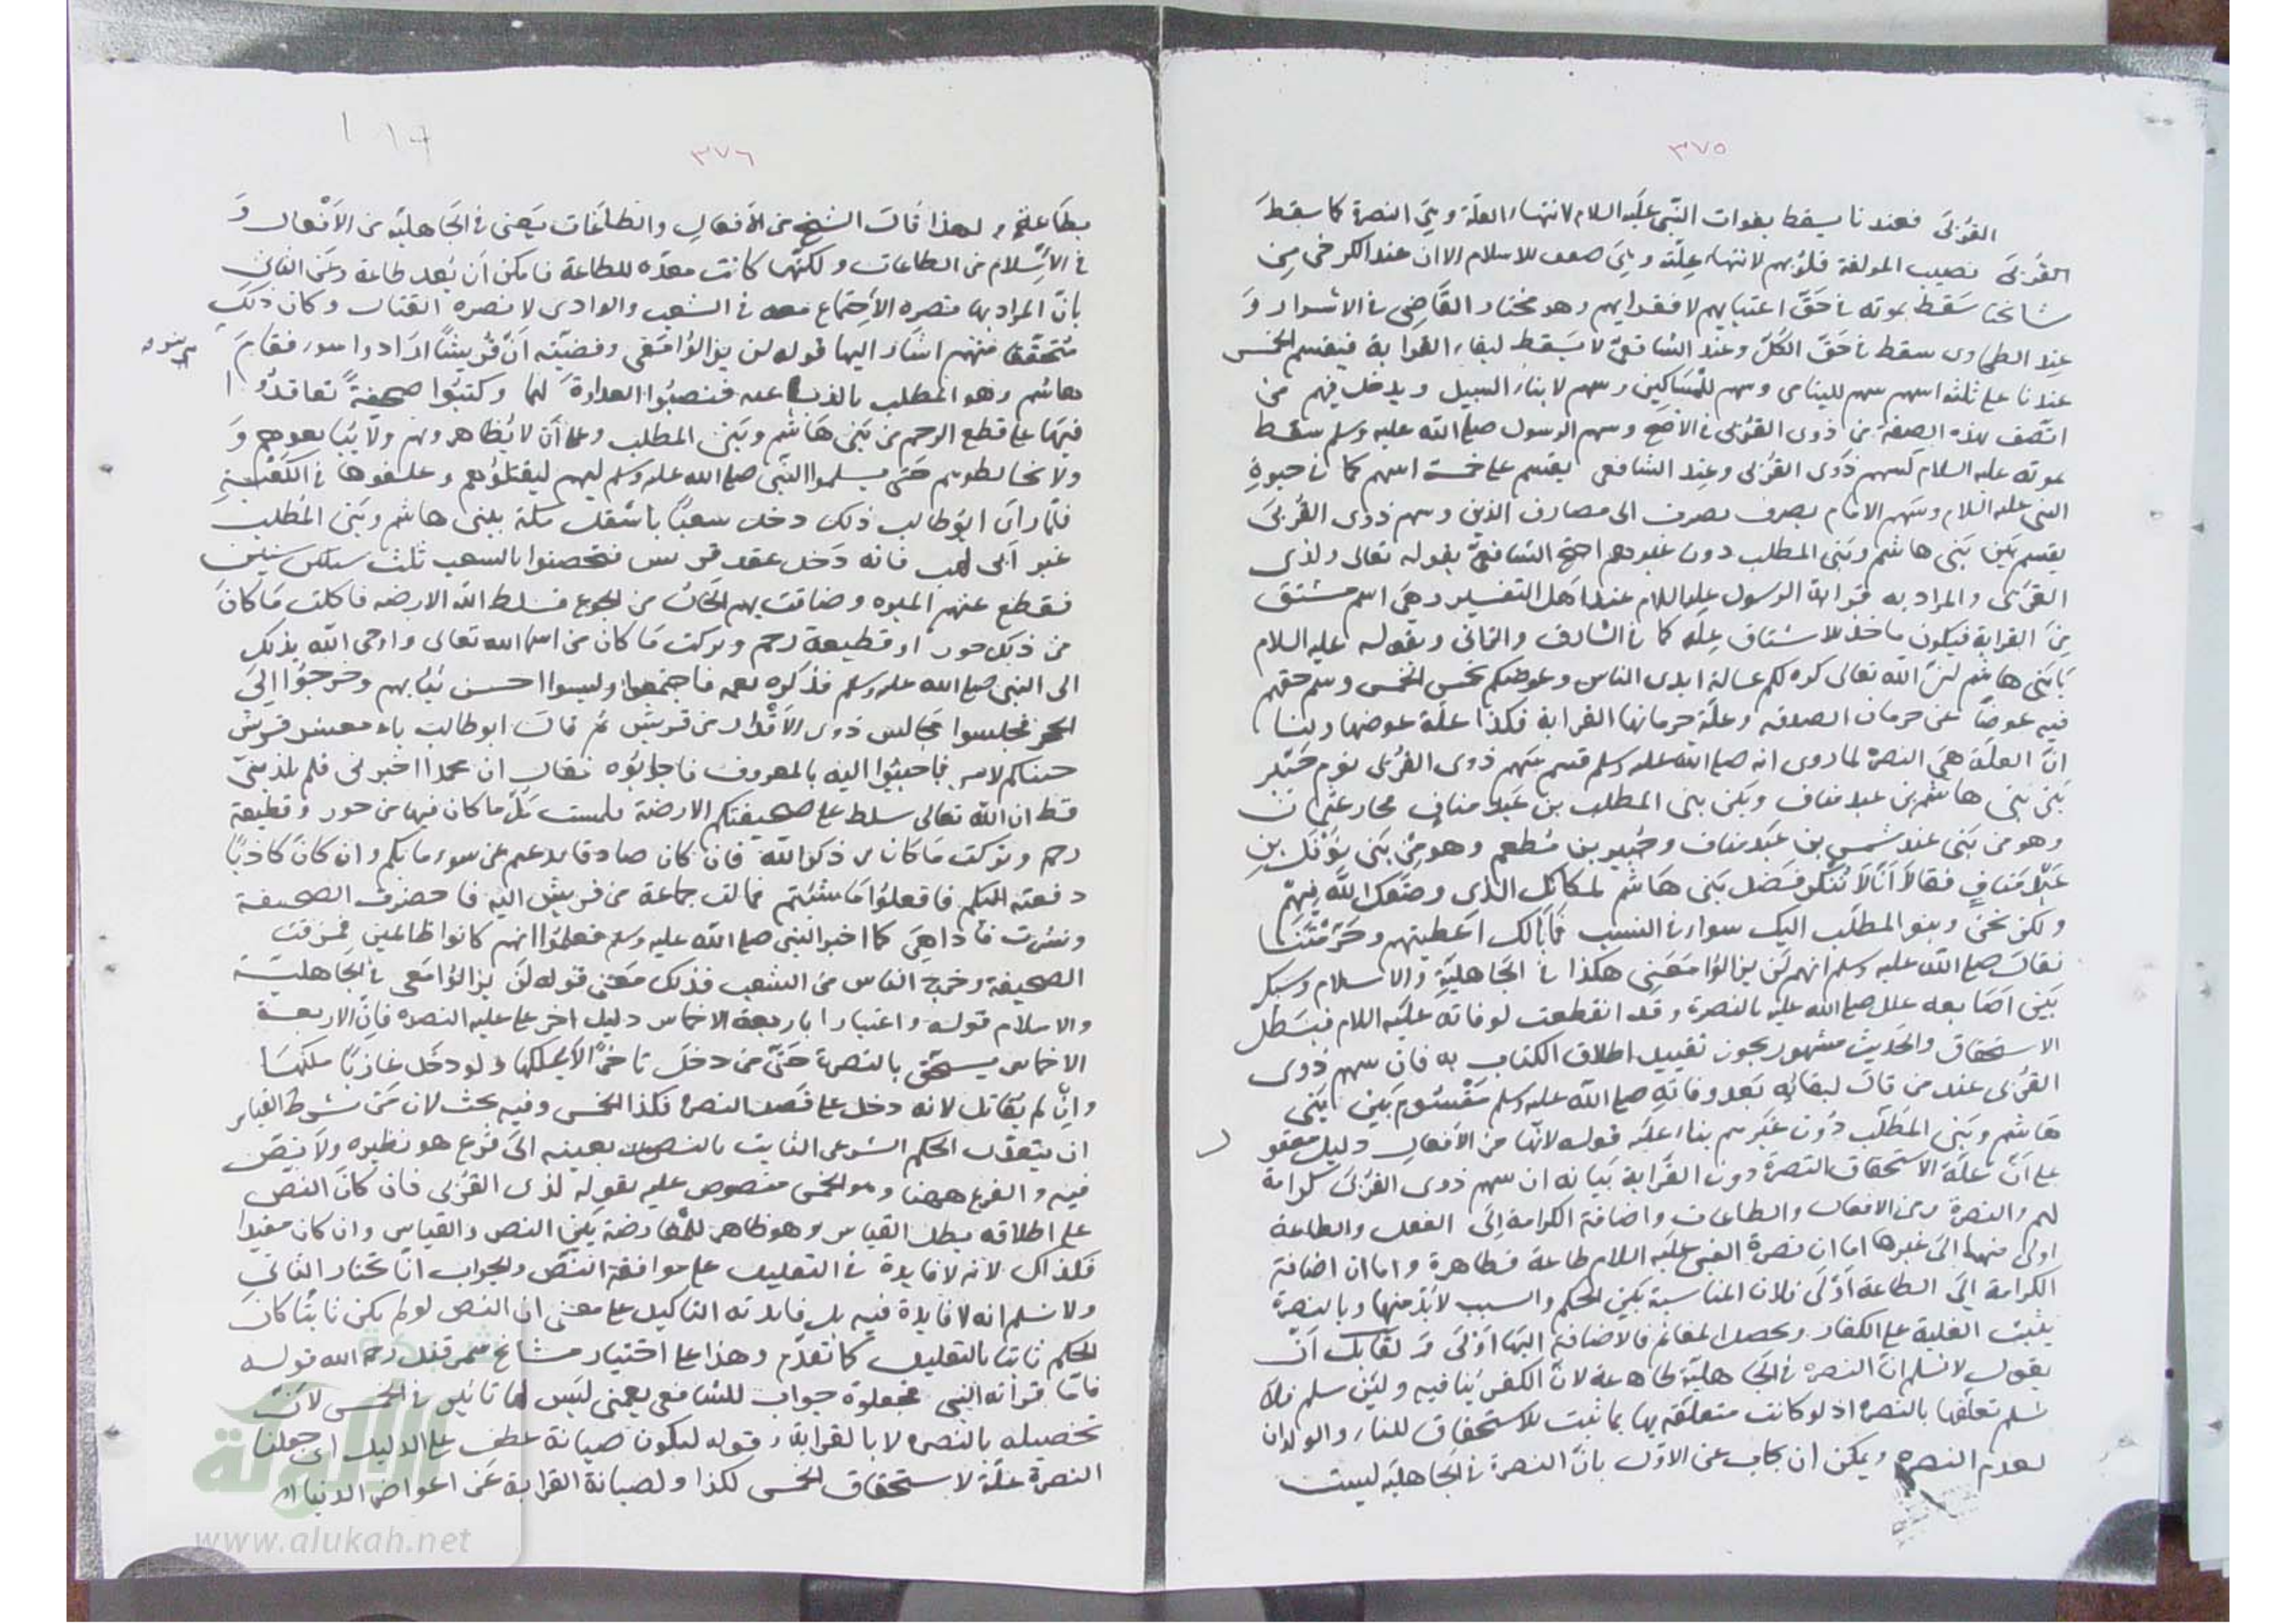 ٣٧٥
القربى فعندنا يسقط بفوات النبي عليه السلام لانتهاء العلة وهي النصرة كما سقط
القربى نصيب المولفة قلوبهم لانتهاء علته وهي ضعف للاسلام الا ان عند الكرخي من
مشايخنا سقط بموته في حق اغنيايهم لا فقرايهم وهو مختار القاضي في الاسرار و
عند الطحاوى سقط في حق الكل وعند الشافعي لا يسقط لبقاء القرابة فيقسم الخمس
عندنا على ثلثه اسهم سهم لليتامى وسهم للمساكين وسهم لابناء السبيل ويدخل فيهم من
اتصف بهذه الصفة من ذوى القربى في الاصح وسهم الرسول صلى الله عليه وسلم سقط
بموته عليه السلام كسهم ذوى القربى وعند الشافعي يقسم على خمسة اسهم كما في حيوة
النبي عليه السلام وسهم الامام يصرف يصرف الى مصارف الدين وسهم ذوى القربى
يقسم بين بنى هاشم وبنى المطلب دون غيرهم احتج الشافعي بقوله تعالى ولذى
القربى والمراد به قرابة الرسول عليه السلام عند اهل التفسير وهي اسم مشتق
من القرابة فيكون ماخذ الاشتقاق علة كما في السارق والزاني وبقوله عليه السلام
يا بنى هاشم ان الله تعالى كره لكم غسالة ايدى الناس وعوضكم بخمس الخمس وسهم حقهم
فيه عوضا عن حرمان الصدقه وعلة حرمانها القرابة فكذا علة عوضها ولنا
ان العلة هي النصرة لما روى انه صلى الله عليه وسلم قسم سهم ذوى القربى يوم خيبر
بين بنى هاشم بن عبد مناف وبين بنى المطلب بن عبد مناف فجاء عثمان
وهو من بنى عبد شمس بن عبد مناف وجبير بن مطعم وهو من بنى نوفل بن
عبد مناف فقالا انا لا ننكر فضل بنى هاشم لمكانك الذى وضعك الله فيهم
ولكن نحن وبنو المطلب اليك سواء في النسب فما بالك اعطيتهم وحرمتنا
فقال صلى الله عليه وسلم انهم لن يزالوا معي هكذا في الجاهلية والاسلام وشبك
بين اصابعه علل صلى الله عليه بالنصرة وقد انقطعت لوفاته عليه السلام فبطل
الاستحقاق والحديث مشهور يجوز تقييد اطلاق الكتاب به فان سهم ذوى
القربى عند من قال لبقائه بعد وفاته صلى الله عليه وسلم مقسوم بين بنى
هاشم وبنى المطلب دون غيرهم بناء عليه قوله لانها من الافعال دليل معقو
ل
على ان علة الاستحقاق النصرة دون القرابة بيانه ان سهم ذوى القربى كرامة
لهم والنصرة من الافعال والطاعات واضافة الكرامة الى الفعل والطاعة
اولى منها الى غيرها اما ان نصرة النبي عليه السلام طاعة فظاهرة واما ان اضافة
الكرامة الى الطاعة اولى فلان المناسبة بين الحكم والسبب لا بد منها وبالنصرة
يثبت الغلبة على الكفار ويحصل المغانم فالاضافة اليها اولى ولقايل ان
يقول لا نسلم ان النصره في الجاهلية طاعة لان الكفر ينافيه ولئن سلم فلا
نسلم تعلقها بالنصره اذ لو كانت متعلقه بها لما ثبت الاستحقاق للنساء والولدان
لعدم النصره ويمكن ان يجاب عن الاول بان النصرة في الجاهلية ليست
٣٧٦
بطاعة ولهذا قال الشيخ من الافعال والطاعات يعنى في الجاهلية من الافعال و
في الاسلام من الطاعات ولكنها كانت معدة للطاعة فامكن ان يعد طاعة وعن الثاني
بان المراد بها نصره الاجتماع معه في الشعب والوادى لا نصره القتال وكان ذلك
متحققا منهم اشار اليها قوله لن يزالوا معي وقضيته ان قريشا ارادوا سوء فقام
هاشم وهو المطلب بالذب عنه فنصبوا العداوة لهما وكتبوا صحيفة تعاقدوا
فيها على قطع الرحم من بنى هاشم وبنى المطلب وعلى ان لا يظاهرونهم ولا يبايعوهم و
ولا يخالطوهم حتى يسلموا النبي صلى الله عليه وسلم اليهم ليقتلوهم وعلقوها في الكعبة
فلما راى ابو طالب ذلك دخل شعبا باسفل مكة ببنى هاشم وبنى المطلب
غير ابى لهب فانه دخل عقد قريش فتحصنوا بالشعب ثلث سنين
فقطع عنهم الميره وضاقت بهم الحال من الجوع فسلط الله الارضه فاكلت ما كان
من ذلك جور او قطيعة رحم وتركت ما كان من اسماء الله تعالى واوحى الله بذلك
الى النبي صلى الله عليه وسلم فذكره لعمه فاجتمعوا ولبسوا احسن ثيابهم وخرجوا الى
الحجر فجلسوا مجالس ذوى الاقدار من قريش ثم قال ابو طالب يا معشر قريش
جيناكم لامر فاجيبوا اليه بالمعروف فاجابوه فقال ان محمدا اخبرني فلم يكذبني
قط ان الله تعالى سلط على صحيفتكم الارضة فلحست كل ما كان فيها من جور وقطيعة
رحم وتركت ما كان من ذكر الله فان كان صادقا نزعتم عن سوء رايكم وان كان كاذبا
دفعته اليكم فافعلوا ما شئتم فمالت جماعة من قريش اليه فاحضرت الصحيفة
ونشرت فاذا هي كما اخبر النبي صلى الله عليه وسلم فعلموا انهم كانوا ظالمين فمزقت
الصحيفة وخرج الناس من الشعب فذلك معنى قوله لن يزالوا معي في الجاهلية
والاسلام قوله واعتبارا باربعة الاخماس دليل اخر على علية النصره فان الاربعة
الاخماس يستحق بالنصرة حتى من دخل تاجرا لا يملكها ولو دخل غازيا ملكها
وان لم يقاتل لانه دخل على قصد النصرة فكذا الخمس وفيه بحث لان من شرط القياس
ان يتعدى الحكم الشرعي الثابت بالنص بعينه الى فرع هو نظيره ولا نص
فيه والفرع ههنا وهو الخمس منصوص عليه بقوله لذى القربى فان كان النص
على اطلاقه يبطل القياس وهو ظاهر للمعارضة بين النص والقياس وان كان مقيدا
فكذلك لانه لا فايدة في التعليل على موافقة النص والجواب انا نختار الثاني
ولا نسلم انه لا فايدة فيه بل فايدته التاكيد على معنى ان النص لو لم يكن ثابتا كان
الحكم ثابتا بالتعليل كما تقدم وهذا على اختيار مشايخ سمرقند رحمه الله قوله
فاما قرابة النبي فجعلوه جواب للشافعي يعنى ليس لها تاثير في الخمس لان
تحصيله بالنصره لا بالقرابة وقوله ليكون صيانة عطف على الدليل اى جعلنا
النصرة علة لاستحقاق الخمس لكذا ولصيانة القرابة عن اعواض الدنيا
شبكة
الألوكة
www.alukah.net